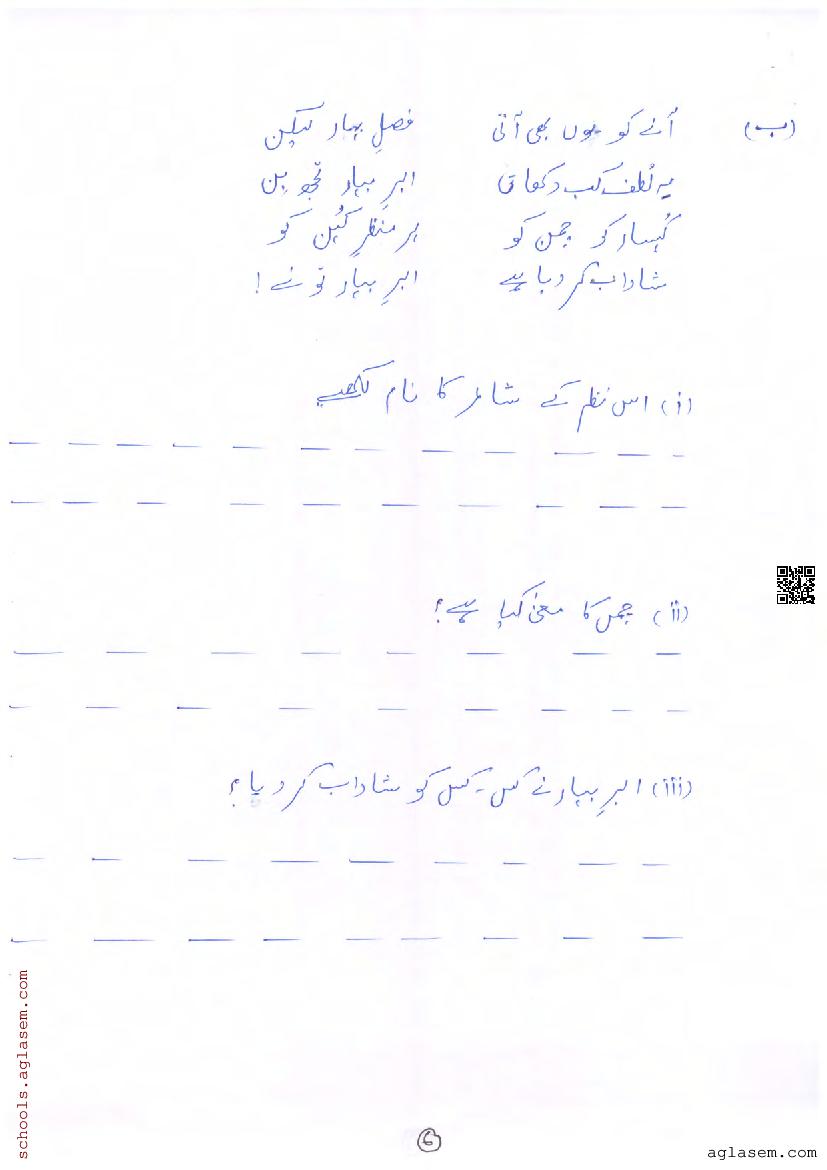 (ب) آنے کو یوں بھی آتی فصلِ بہار لیکن
یہ لُطف کب دکھاتی ابرِ بہار تجھ بِن
کُہسار کو چمن کو ہر منظرِ کُہن کو
شاداب کر دیا ہے ابرِ بہار تو نے !
(i) اس نظم کے شاعر کا نام لکھیے
(ii) چمن کا معنیٰ کیا ہے؟
(iii) ابرِ بہار نے کس-کس کو شاداب کر دیا؟
6
schools.aglasem.com
aglasem.com